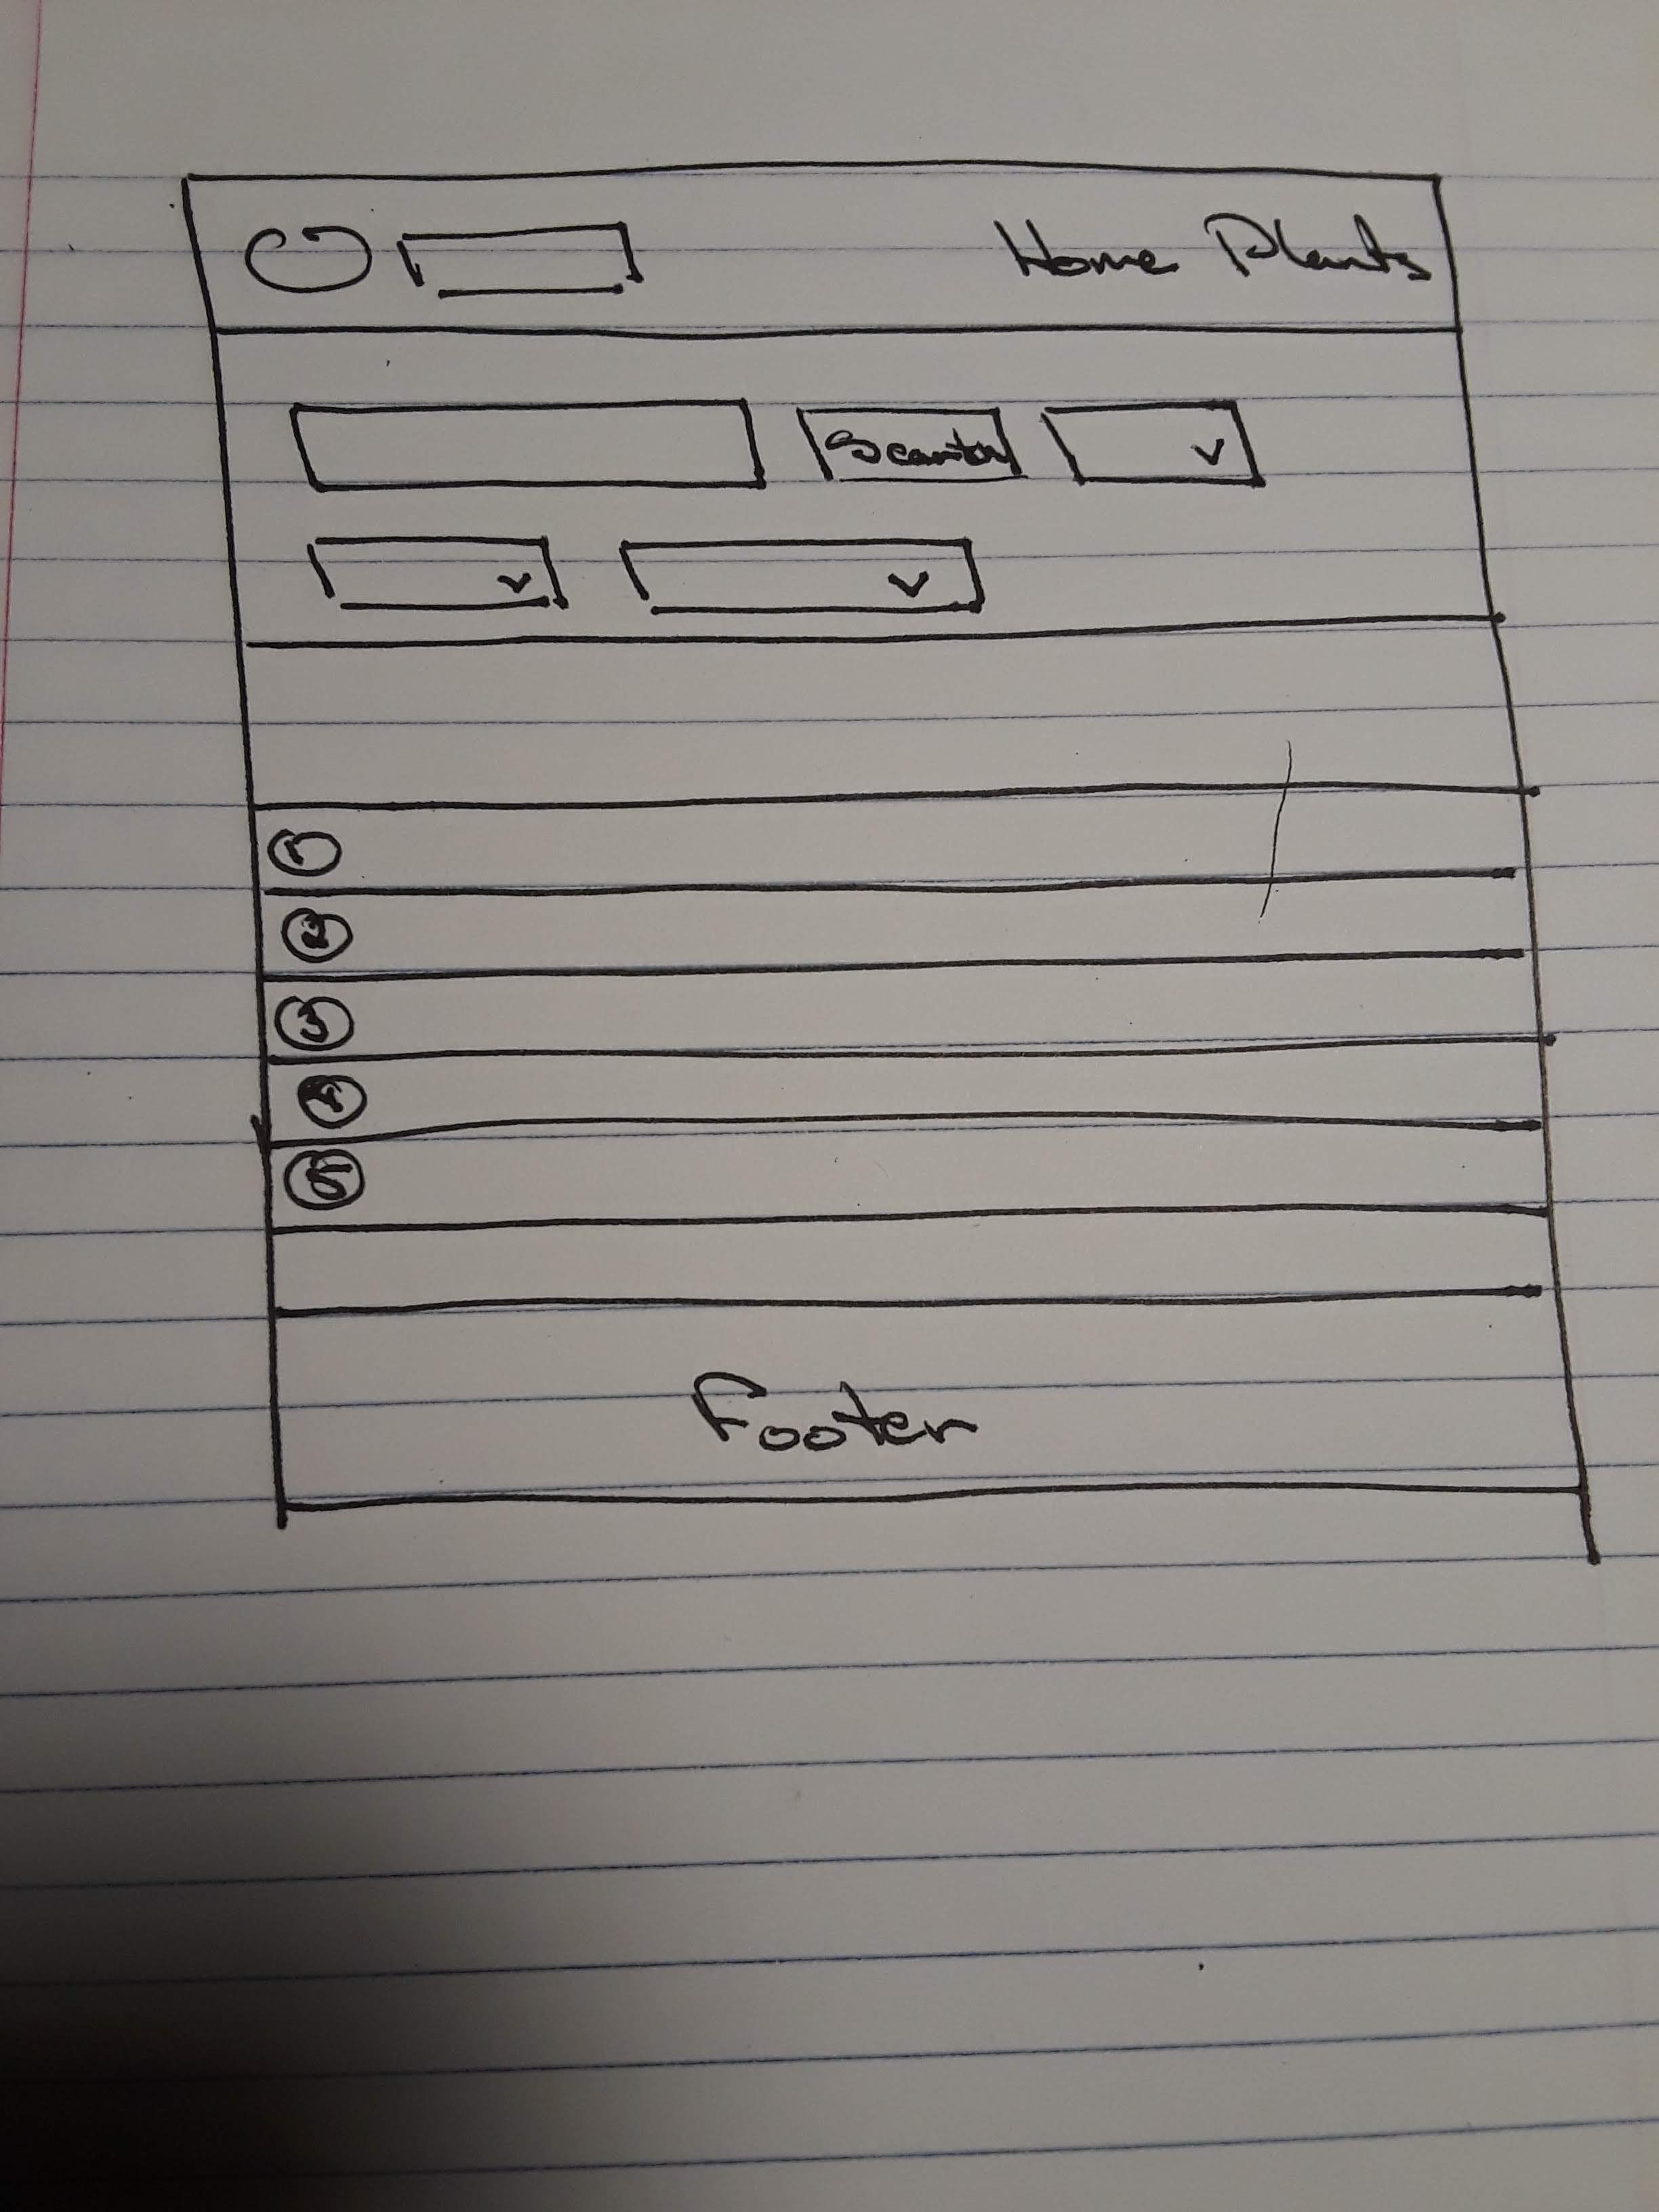 Home Plants
Search
v
v v
1
2
3
4
5
Footer